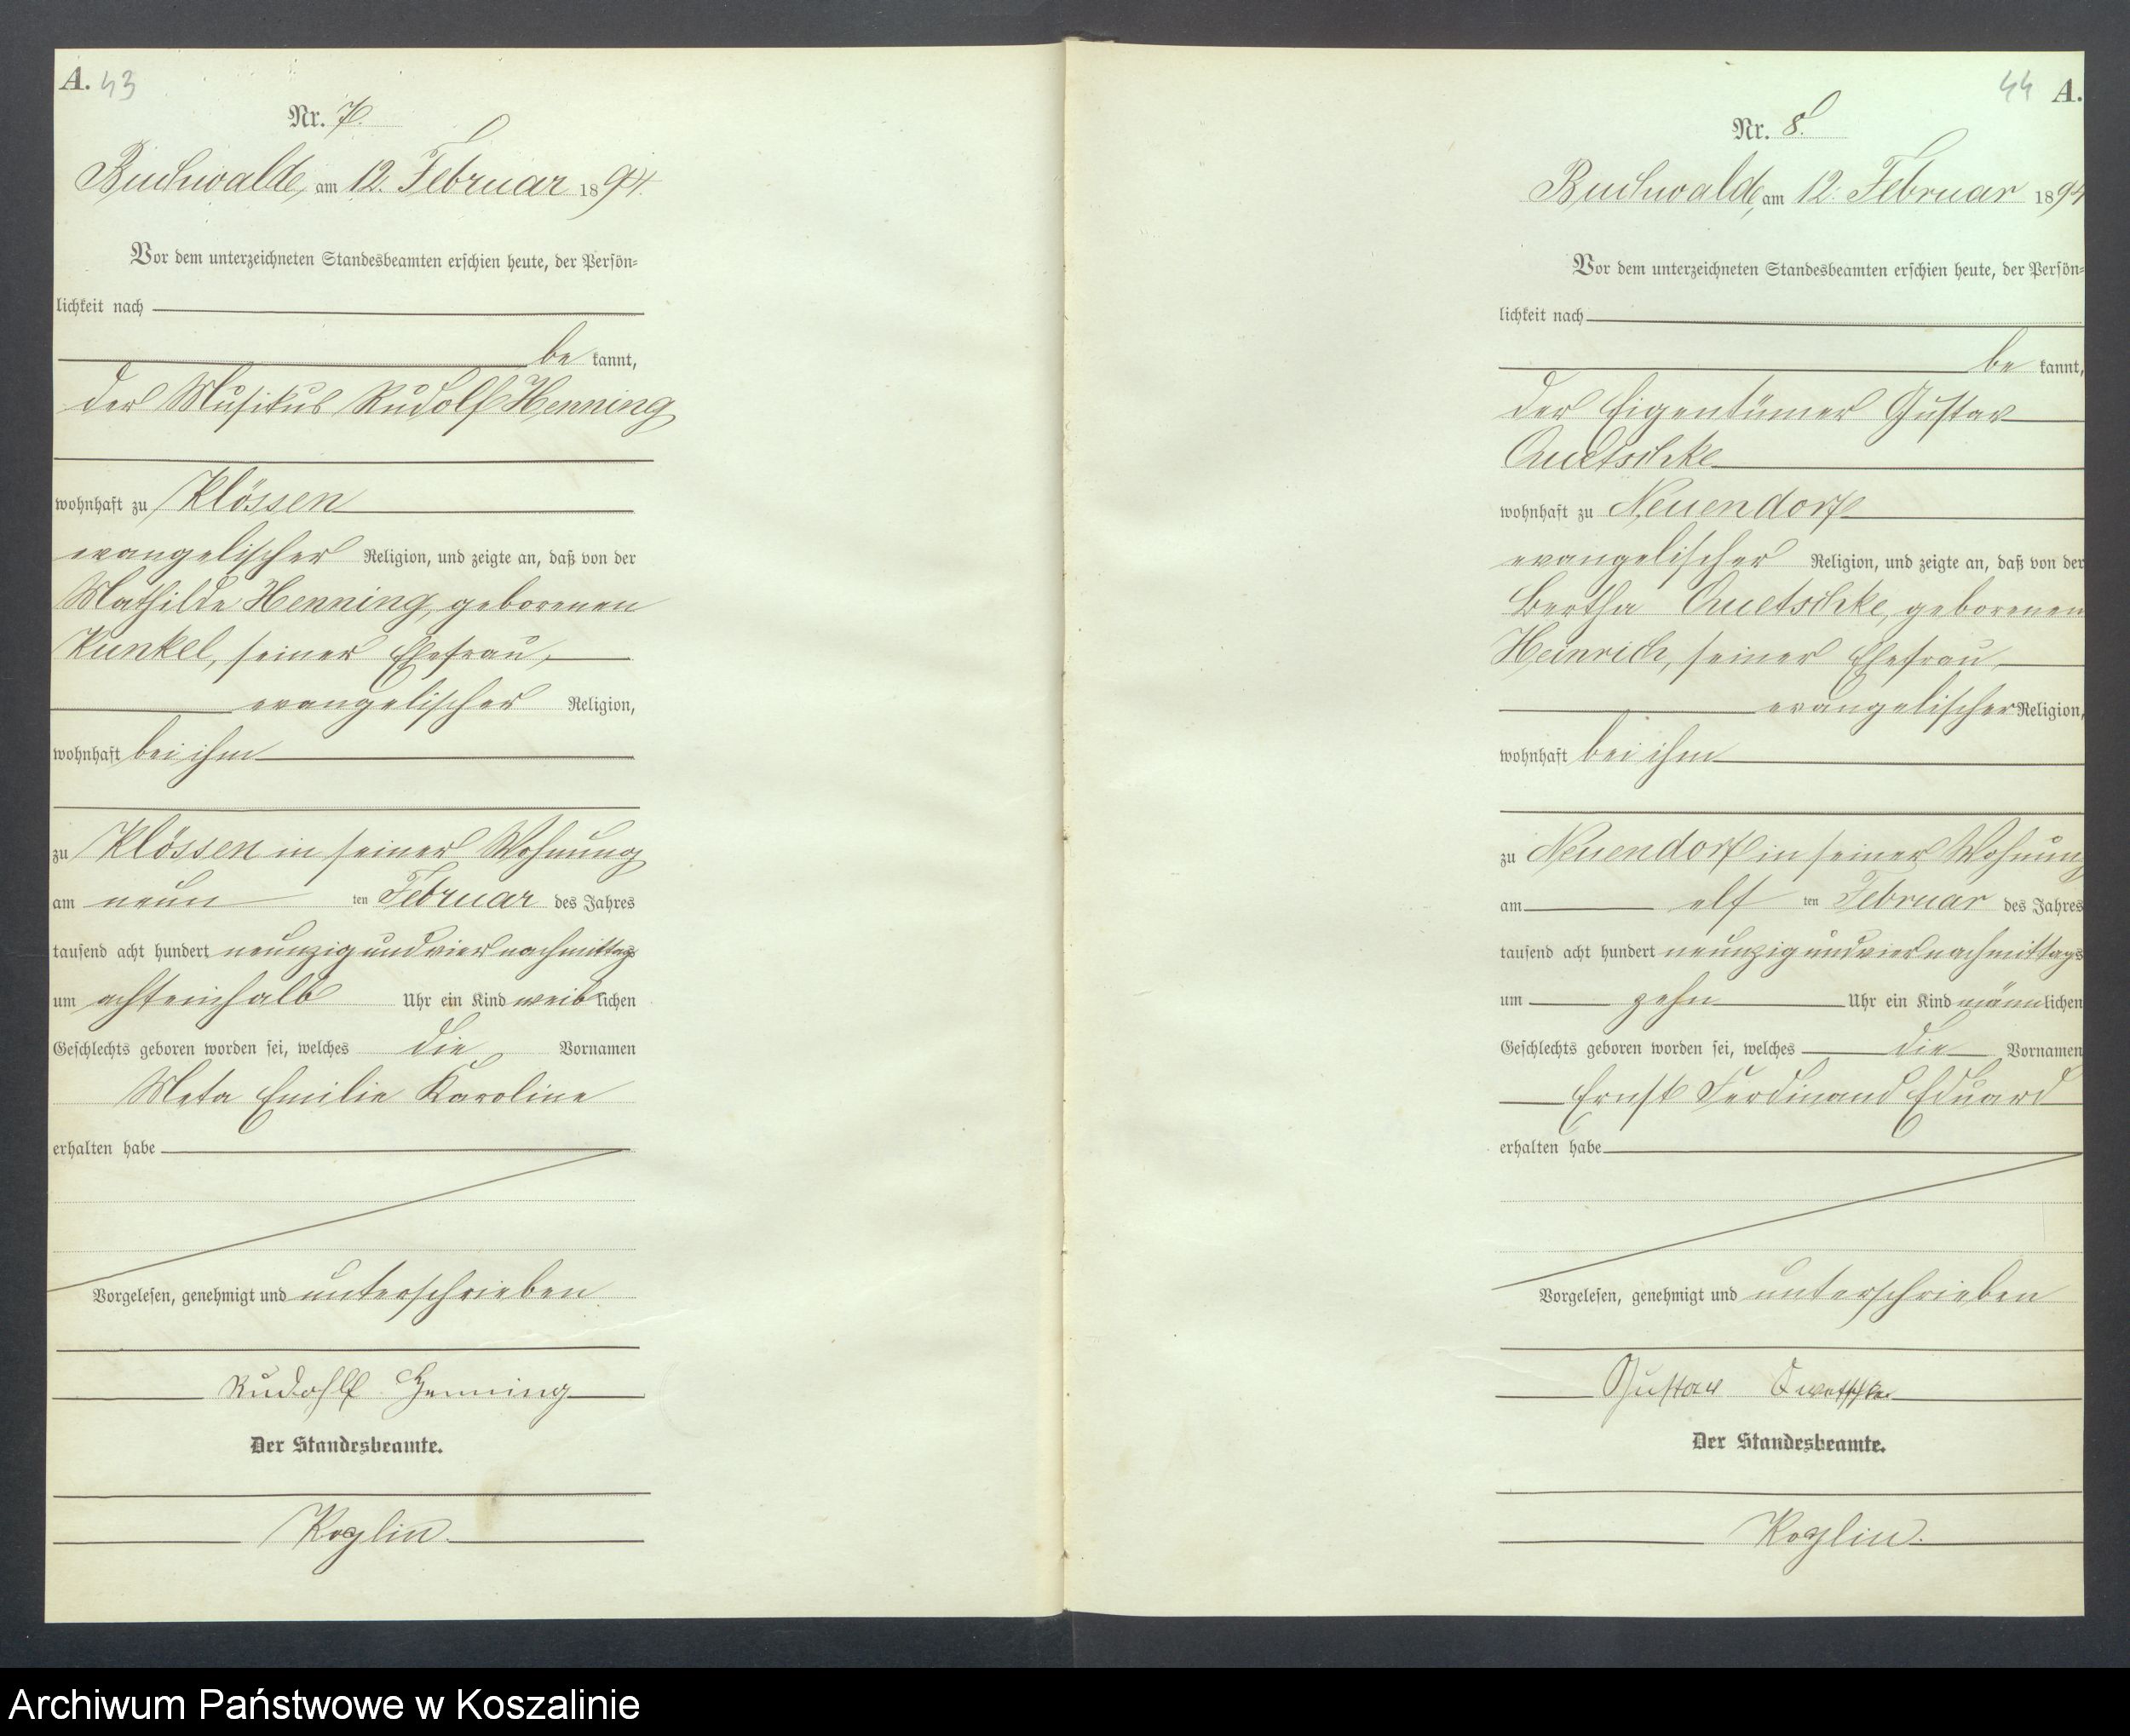 A. 43
Nr. 7.
Buchwalde, am 12. Februar 1894.
Vor dem unterzeichneten Standesbeamten erschien heute, der Persön-
lichkeit nach
be kannt,
der Musikus Rudolf Henning
wohnhaft zu Klössen
evangelischer Religion, und zeigte an, daß von der
Mathilde Henning, geborenen
Kunkel, seiner Ehefrau,
evangelischer Religion,
wohnhaft bei ihm
zu Klössen in seiner Wohnung
am neun ten Februar des Jahres
tausend acht hundert neunzig und vier nachmittags
um achteinhalb Uhr ein Kind weib lichen
Geschlechts geboren worden sei, welches die Vornamen
Meta Emilie Karoline
erhalten habe
Vorgelesen, genehmigt und unterschrieben
Rudohlf Henning
Der Standesbeamte.
Koglin.
44 A.
Nr. 8.
Buchwalde, am 12. Februar 1894
Vor dem unterzeichneten Standesbeamten erschien heute, der Persön-
lichkeit nach
be kannt,
der Eigentümer Gustav
Quetschke
wohnhaft zu Neuendorf
evangelischer Religion, und zeigte an, daß von der
Bertha Quetschke, geborenen
Heinrich, seiner Ehefrau,
evangelischer Religion,
wohnhaft bei ihm
zu Neuendorf in seiner Wohnung
am elf ten Februar des Jahres
tausend acht hundert neunzig und vier nachmittags
um zehn Uhr ein Kind männ lichen
Geschlechts geboren worden sei, welches die Vornamen
Ernst Ferdinand Eduard
erhalten habe
Vorgelesen, genehmigt und unterschrieben
Gustav Quetschke
Der Standesbeamte.
Koglin.
Archiwum Państwowe w Koszalinie